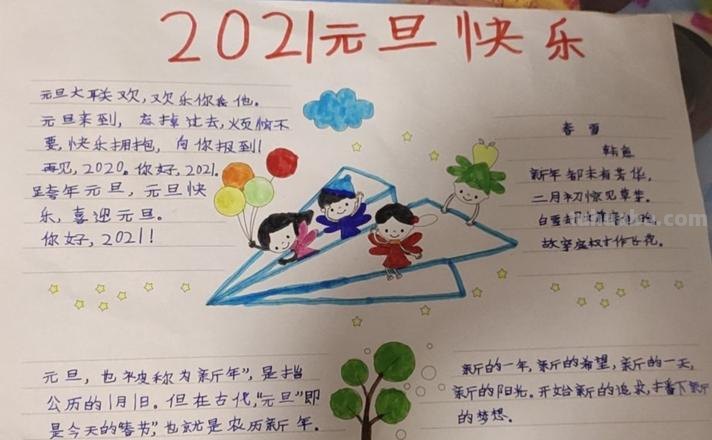 2021元旦快乐
元旦大联欢,欢乐你我他。
元旦来到,忘掉过去,烦恼不
要,快乐拥抱,向你报到!
再见,2020。你好,2021。
跨年元旦,元旦快
乐,喜迎元旦。
你好,2021!
春雪
韩愈
新年都未有芳华,
二月初惊见草芽。
白雪
故穿庭树作飞花。
元旦,也被称为"新年",是指
公历的1月1日。但在古代,"元旦"即
是今天的"春节",也就是农历新年。
新的一年,新的希望,新的一天,
新的阳光。开始新的追求,播下新
的梦想。